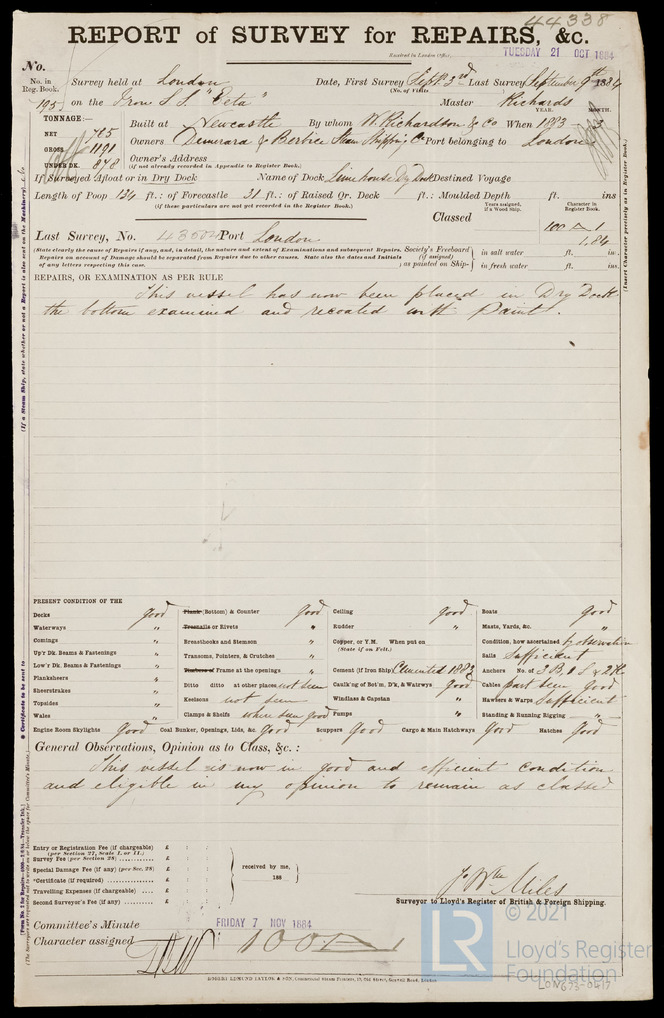 44338
REPORT of SURVEY for REPAIRS, &c.
Received in London Office, TUESDAY 21 OCT 1884
No.
No. in Reg. Book. Survey held at London Date, First Survey Sept 3rd Last Survey September 9th 1884
(No. of Visits
195 on the Iron S.S. "Eeta" Master Richards
TONNAGE:— YEAR. MONTH.
NET 765 Built at Newcastle By whom W. Richardson & Co When 1883
GROSS 1191 Owners Demerara & Berbice Steam Shipping Co Port belonging to London
UNDER DK. 878 Owner's Address
(if not already recorded in Appendix to Register Book.)
If Surveyed Afloat or in Dry Dock Name of Dock Limehouse Dry Dock Destined Voyage
Length of Poop 134 ft.: of Forecastle 31 ft.: of Raised Qr. Deck ft.: Moulded Depth ft. ins
(if these particulars are not yet recorded in the Register Book.) Years assigned, if a Wood Ship. Character in Register Book.
Classed 100 A 1
Last Survey, No. Port London 1,84
(State clearly the cause of Repairs if any, and, in detail, the nature and extent of Examinations and subsequent Repairs. Society's Freeboard in salt water ft. in.
Repairs on account of Damage should be separated from Repairs due to other causes. State also the dates and Initials (if assigned)
of any letters respecting this case. ; as painted on Ship- in fresh water ft. in.
REPAIRS, OR EXAMINATION AS PER RULE
This vessel has now been placed in Dry Dock
the bottom examined and recoated with Paint.
PRESENT CONDITION OF THE
Decks good
Waterways "
Comings "
Up'r Dk. Beams & Fastenings "
Low'r Dk. Beams & Fastenings "
Plankshears "
Sheerstrakes "
Topsides "
Wales "
Engine Room Skylights Good
Plank (Bottom) & Counter good
Treenails or Rivets "
Breasthooks and Stemson "
Transoms, Pointers, & Crutches "
Timbers or Frame at the openings "
Ditto ditto at other places not seen
Keelsons not seen
Clamps & Shelfs where seen good
Coal Bunker, Openings, Lids, &c. Good
Ceiling good
Rudder "
Copper, or Y.M. When put on
(State if on Felt.)
Cement (if Iron Ship) Cemented 1883
Caulk'ng of Bot'm, D'k, & Watrwys good
Windlass & Capstan "
Pumps "
Scuppers Good Cargo & Main Hatchways Good
Boats good
Masts, Yards, &c. "
Condition, how ascertained by observation
Sails Sufficient
Anchors No. of 3 B, 1 S & 2 K
Cables part seen good
Hawsers & Warps Sufficient
Standing & Running Rigging "
Hatches Good
General Observations, Opinion as to Class, &c. :
This vessel is now in good and efficient condition
and eligible in my opinion to remain as classed
Entry or Registration Fee (if chargeable) £
(per Section 27, Scale I. or II.)
Survey Fee (per Section 28) £
Special Damage Fee (if any) (per Sec. 28) £
*Certificate (if required) £
Travelling Expenses (if chargeable) £
Second Surveyor's Fee (if any) £
received by me,
188
J. Wm Miles
Surveyor to Lloyd's Register of British & Foreign Shipping.
Committee's Minute FRIDAY 7 NOV 1884
Character assigned 100A1
ROBERT EDMUND TAYLOR & SON, Commercial Steam Printers, 19, Old Street, Goswell Road, London
(If a Steam Ship, state whether or not a Report is also sent on the Machinery)
* Certificate to be sent to
(Insert Character precisely as in Register Book.)
LR
© 2021
Lloyd's Register
Foundation
LON673-0417